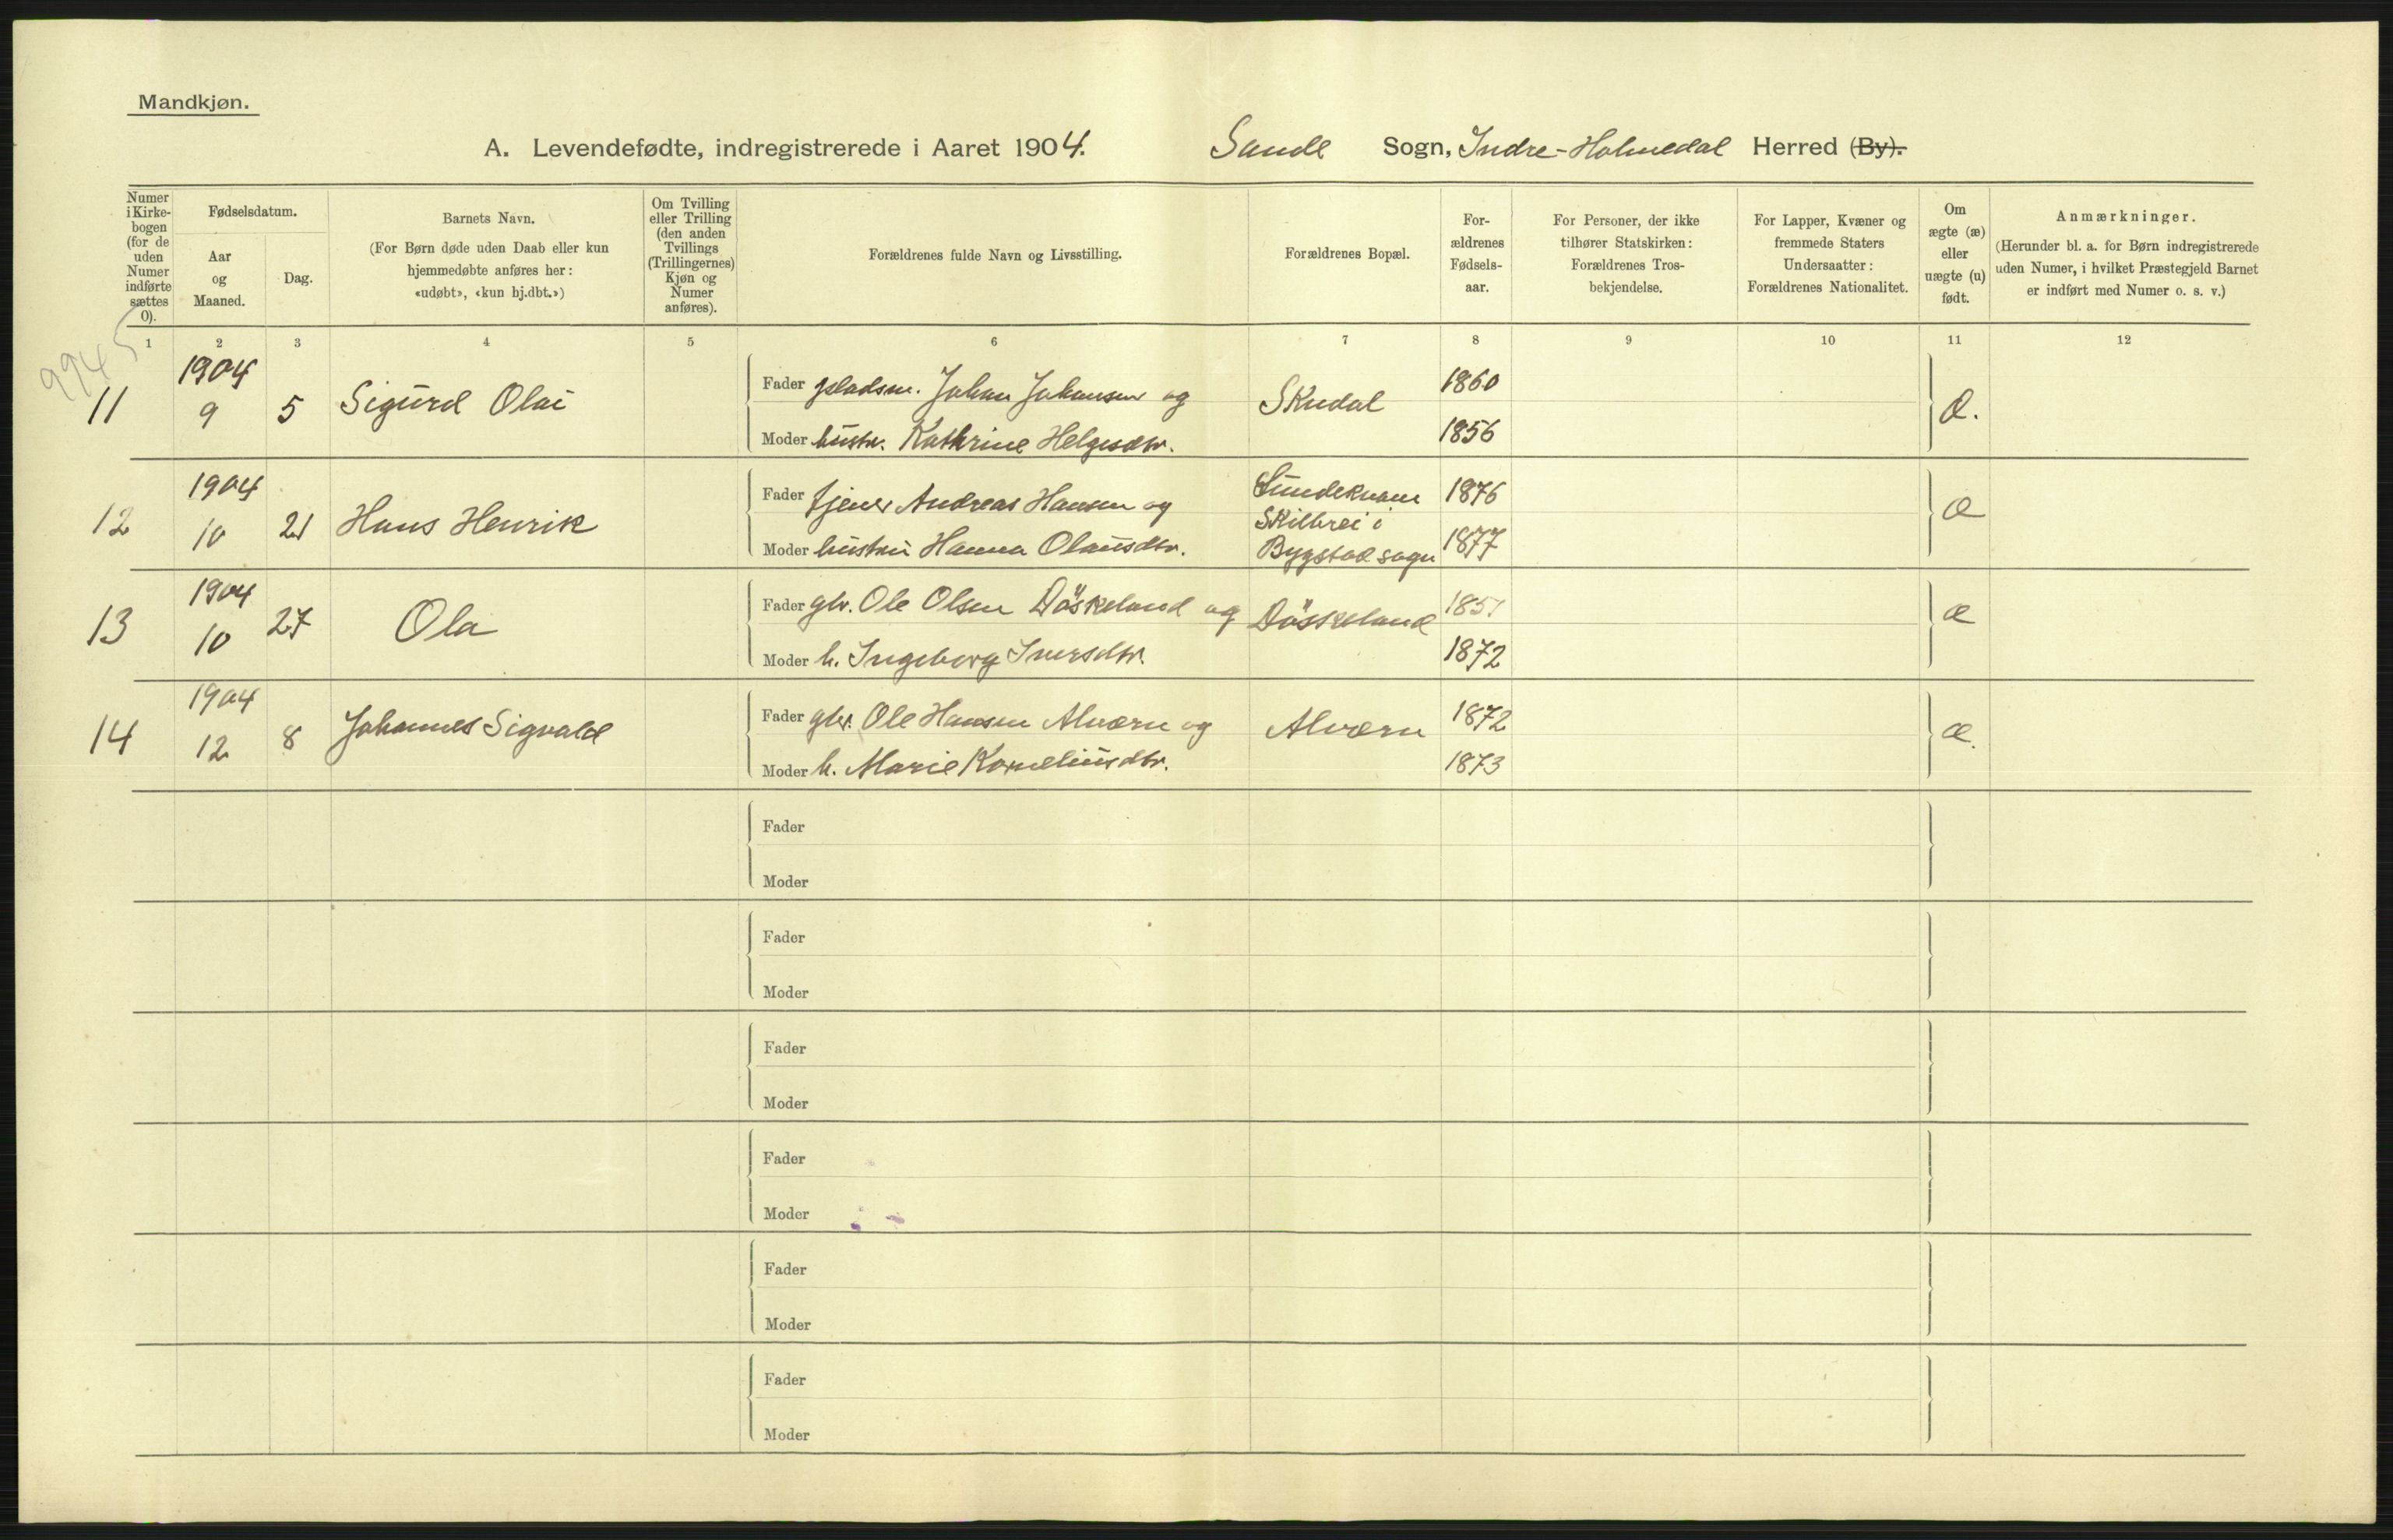 Mandkjøn.
A. Levendefødte, indregistrerede i Aaret 1904. Sande Sogn, Indre-Holmedal Herred (By).
Numer i Kirke-bogen (for de uden Numer indførte sættes 0).
Fødselsdatum.
Aar og Maaned.
Dag.
Barnets Navn.
(For Børn døde uden Daab eller kun
hjemmedøbte anføres her:
«udøbt», «kun hj.dbt.»)
Om Tvilling
eller Trilling
(den anden
Tvillings
(Trillingernes)
Kjøn og
Numer
anføres).
Forældrenes fulde Navn og Livsstilling.
Forældrenes Bopæl.
For-
ældrenes
Fødsels-
aar.
For Personer, der ikke
tilhører Statskirken:
Forældrenes Tros-
bekjendelse.
For Lapper, Kvæner og
fremmede Staters
Undersaatter:
Forældrenes Nationalitet.
Om
ægte (æ)
eller
uægte (u)
født.
Anmærkninger.
(Herunder bl. a. for Børn indregistrerede
uden Numer, i hvilket Præstegjeld Barnet
er indført med Numer o. s. v.)
1 2 3 4 5 6 7 8 9 10 11 12
9945
11 1904 9 5 Sigurd Olai
Fader pladsm. Johan Johansen og Skudal 1860 æ.
Moder hustr. Kathrine Helgesdtr. 1856
12 1904 10 21 Hans Henrik
Fader tjener Andreas Hansen og Sundekvam 1876 æ
Skilbrei i
Moder hustru Hanna Olausdtr. Bygstad sogn 1877
13 1904 10 27 Ola
Fader gbr. Ole Olsen Döskeland og Döskeland 1851 æ
Moder h. Ingeborg Iversdtr. 1872
14 1904 12 8 Johannes Sigvald
Fader gbr. Ole Hansen Alværn og Alværn 1872 æ.
Moder h. Marie Korneliusdtr. 1873
Fader
Moder
Fader
Moder
Fader
Moder
Fader
Moder
Fader
Moder
Fader
Moder